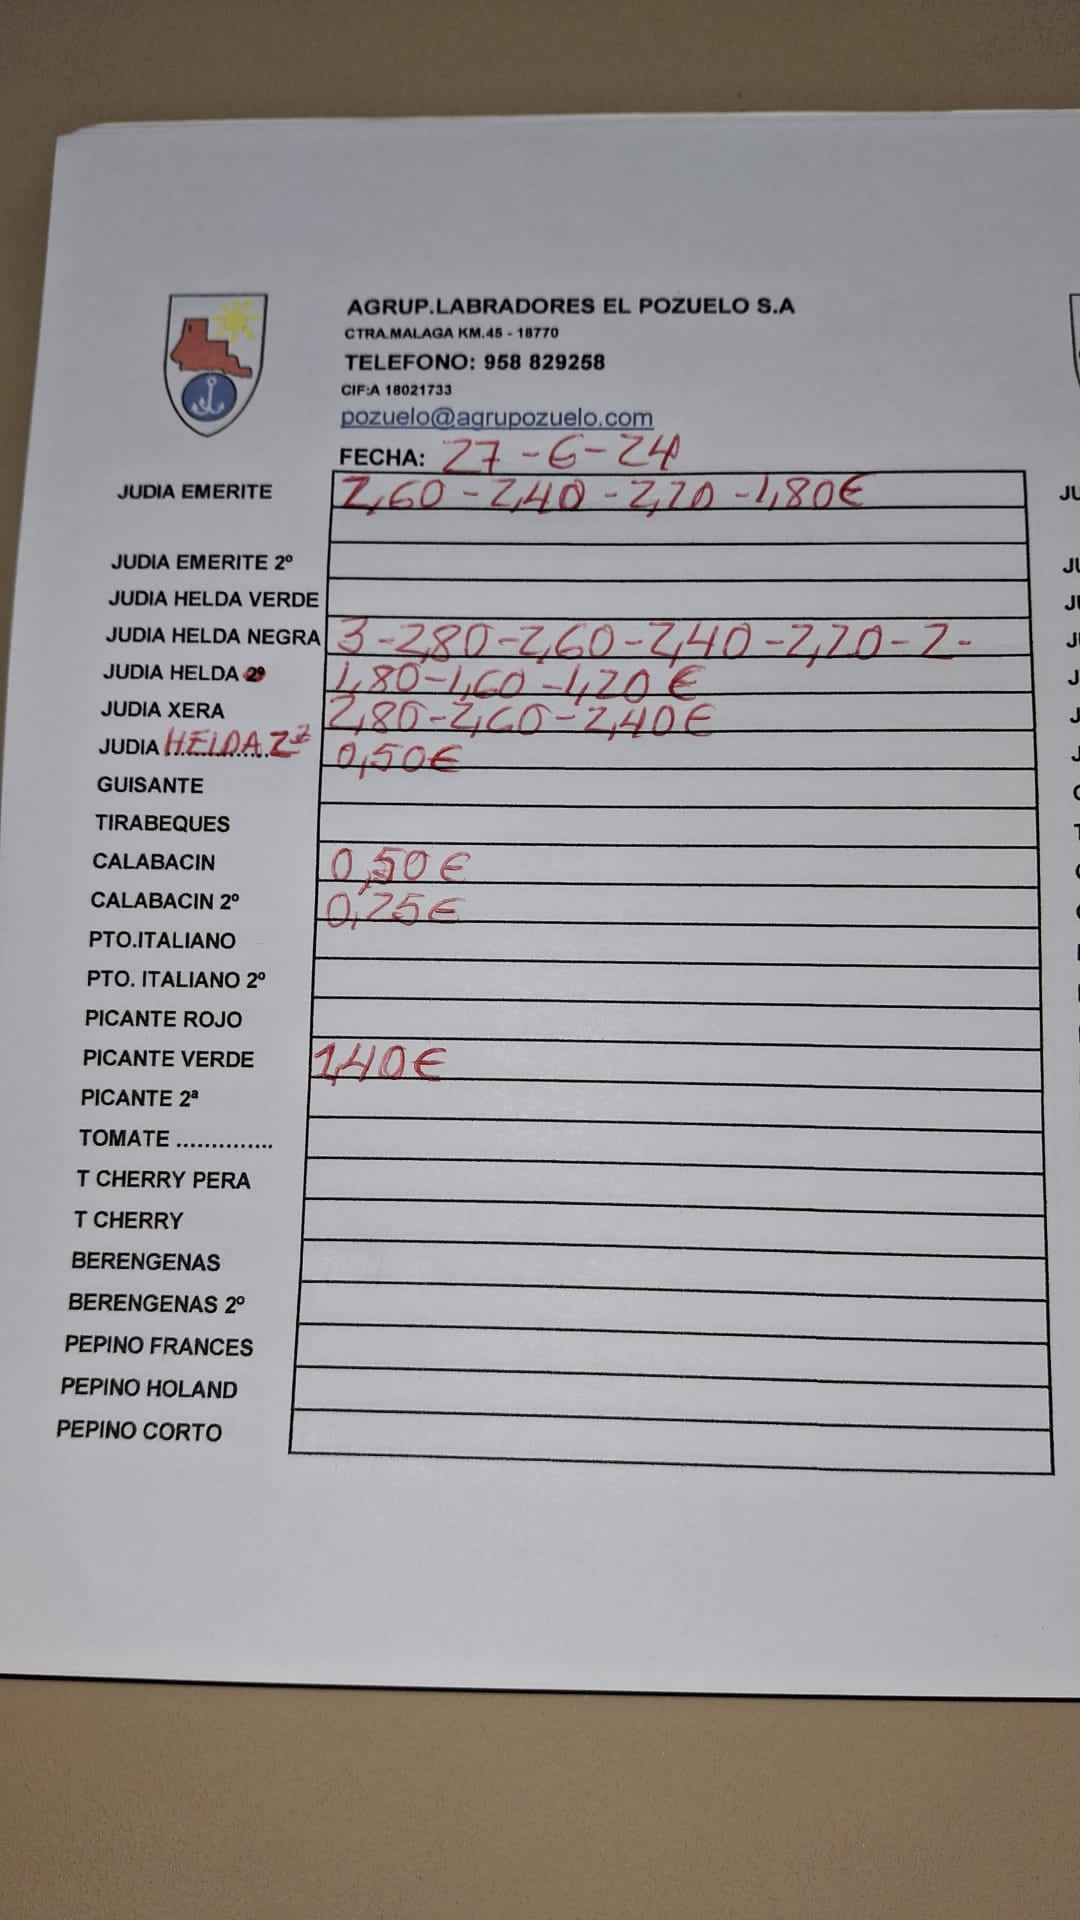 AGRUP.LABRADORES EL POZUELO S.A
CTRA.MALAGA KM.45 - 18770
TELEFONO: 958 829258
CIF:A 18021733
pozuelo@agrupozuelo.com
FECHA: 27-6-24
JUDIA EMERITE 2,60 - 2,40 - 2,20 - 1,80€
JUDIA EMERITE 2º
JUDIA HELDA VERDE
JUDIA HELDA NEGRA 3-2,80-2,60-2,40-2,20-2-
JUDIA HELDA 1,80-1,60-1,20€
JUDIA XERA 2,80-2,60-2,40€
JUDIA HELDA 2ª 0,50€
GUISANTE
TIRABEQUES
CALABACIN 0,50€
CALABACIN 2º 0,25€
PTO.ITALIANO
PTO. ITALIANO 2º
PICANTE ROJO
PICANTE VERDE 1,40€
PICANTE 2ª
TOMATE ..............
T CHERRY PERA
T CHERRY
BERENGENAS
BERENGENAS 2º
PEPINO FRANCES
PEPINO HOLAND
PEPINO CORTO